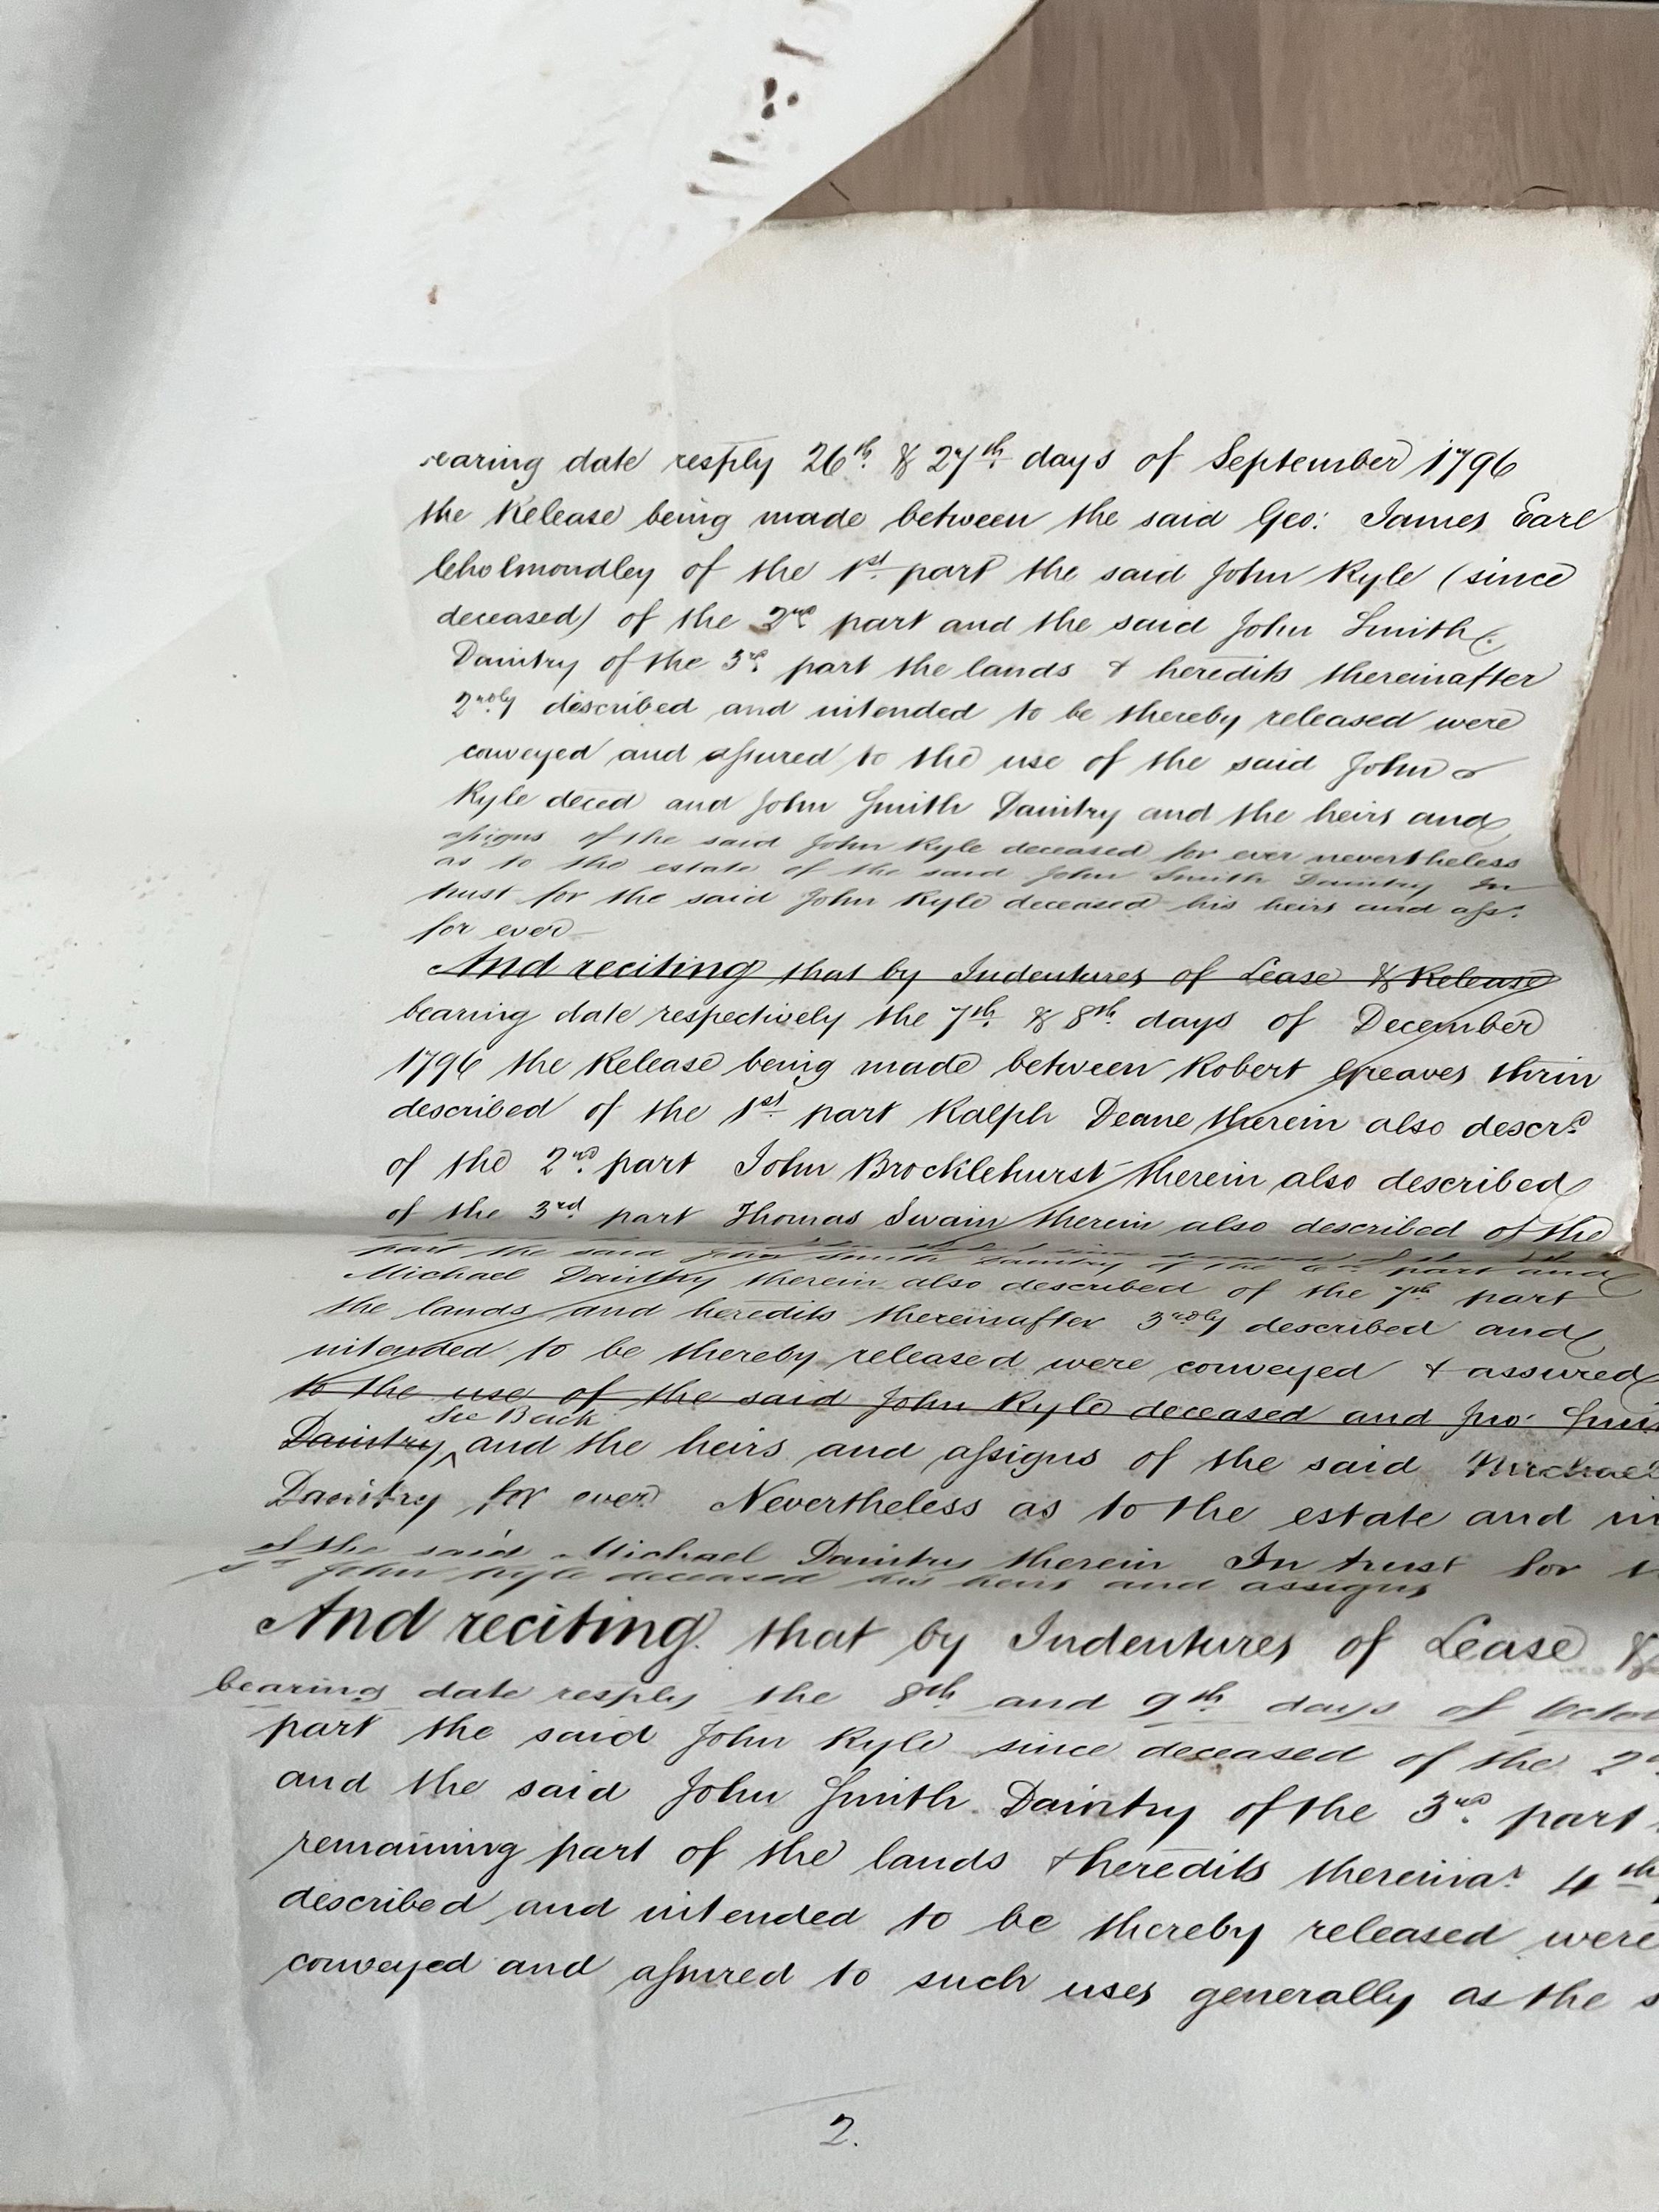 earing date resply 26th & 27th days of September 1796
the Release being made between the said Geo: James Earl
Cholmondley of the 1st part the said John Ryle (since
deceased) of the 2nd part and the said John Smith
Daintry of the 3rd part the lands & heredits thereinafter
2ndly described and intended to be thereby released were
conveyed and assured to the use of the said John
Ryle deced and John Smith Daintry and the heirs and
assigns of the said John Ryle deceased for ever nevertheless
as to the estate of the said John Smith Daintry In
trust for the said John Ryle deceased his heirs and ass:
for ever
And reciting that by Indentures of Lease & Release
bearing date respectively the 7th & 8th days of December
1796 the Release being made between Robert Greaves thrin
described of the 1st part Ralph Deane therein also descrd
of the 2nd part John Brocklehurst therein also described
of the 3rd part Thomas Swain therein also described of the
part the said John Smith Daintry of the 6th part and
Michael Daintry therein also described of the 7th part
the lands and heredits thereinafter 3rdly described and
intended to be thereby released were conveyed & assured
to the use of the said John Ryle deceased and Jno: Smi
See Back
Daintry and the heirs and assigns of the said Michael
Daintry for ever Nevertheless as to the estate and in
of the said Michael Daintry therein In trust for
sd John Ryle deceased his heirs and assigns
And reciting that by Indentures of Lease &
bearing date resply the 8th and 9th days of Octo
part the said John Ryle since deceased of the 2
and the said John Smith Daintry of the 3rd part
remaining part of the lands & heredits thereinar 4th
described and intended to be thereby released were
conveyed and assured to such uses generally as the s
2.